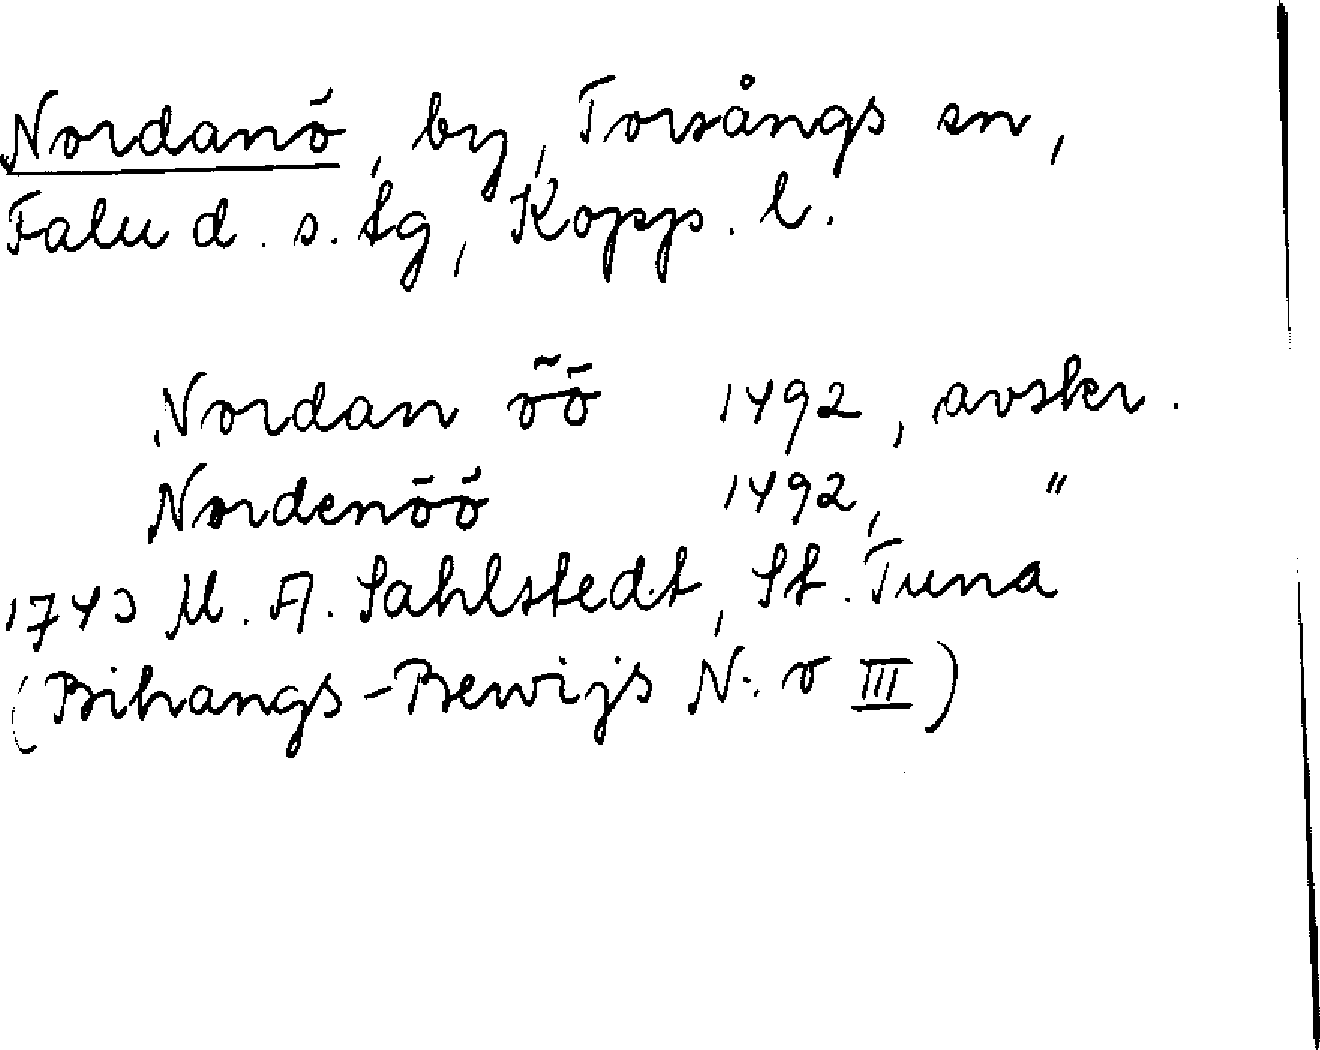 Nordanö, by, Torsångs sn,
Falu d. s. tg, Kopp. l.
Nordan öö 1492, avskr.
Nordenöö 1492, "
1743 M. A. Sahlstedt, St. Tuna
(Bihangs-Bewijs N:o III)